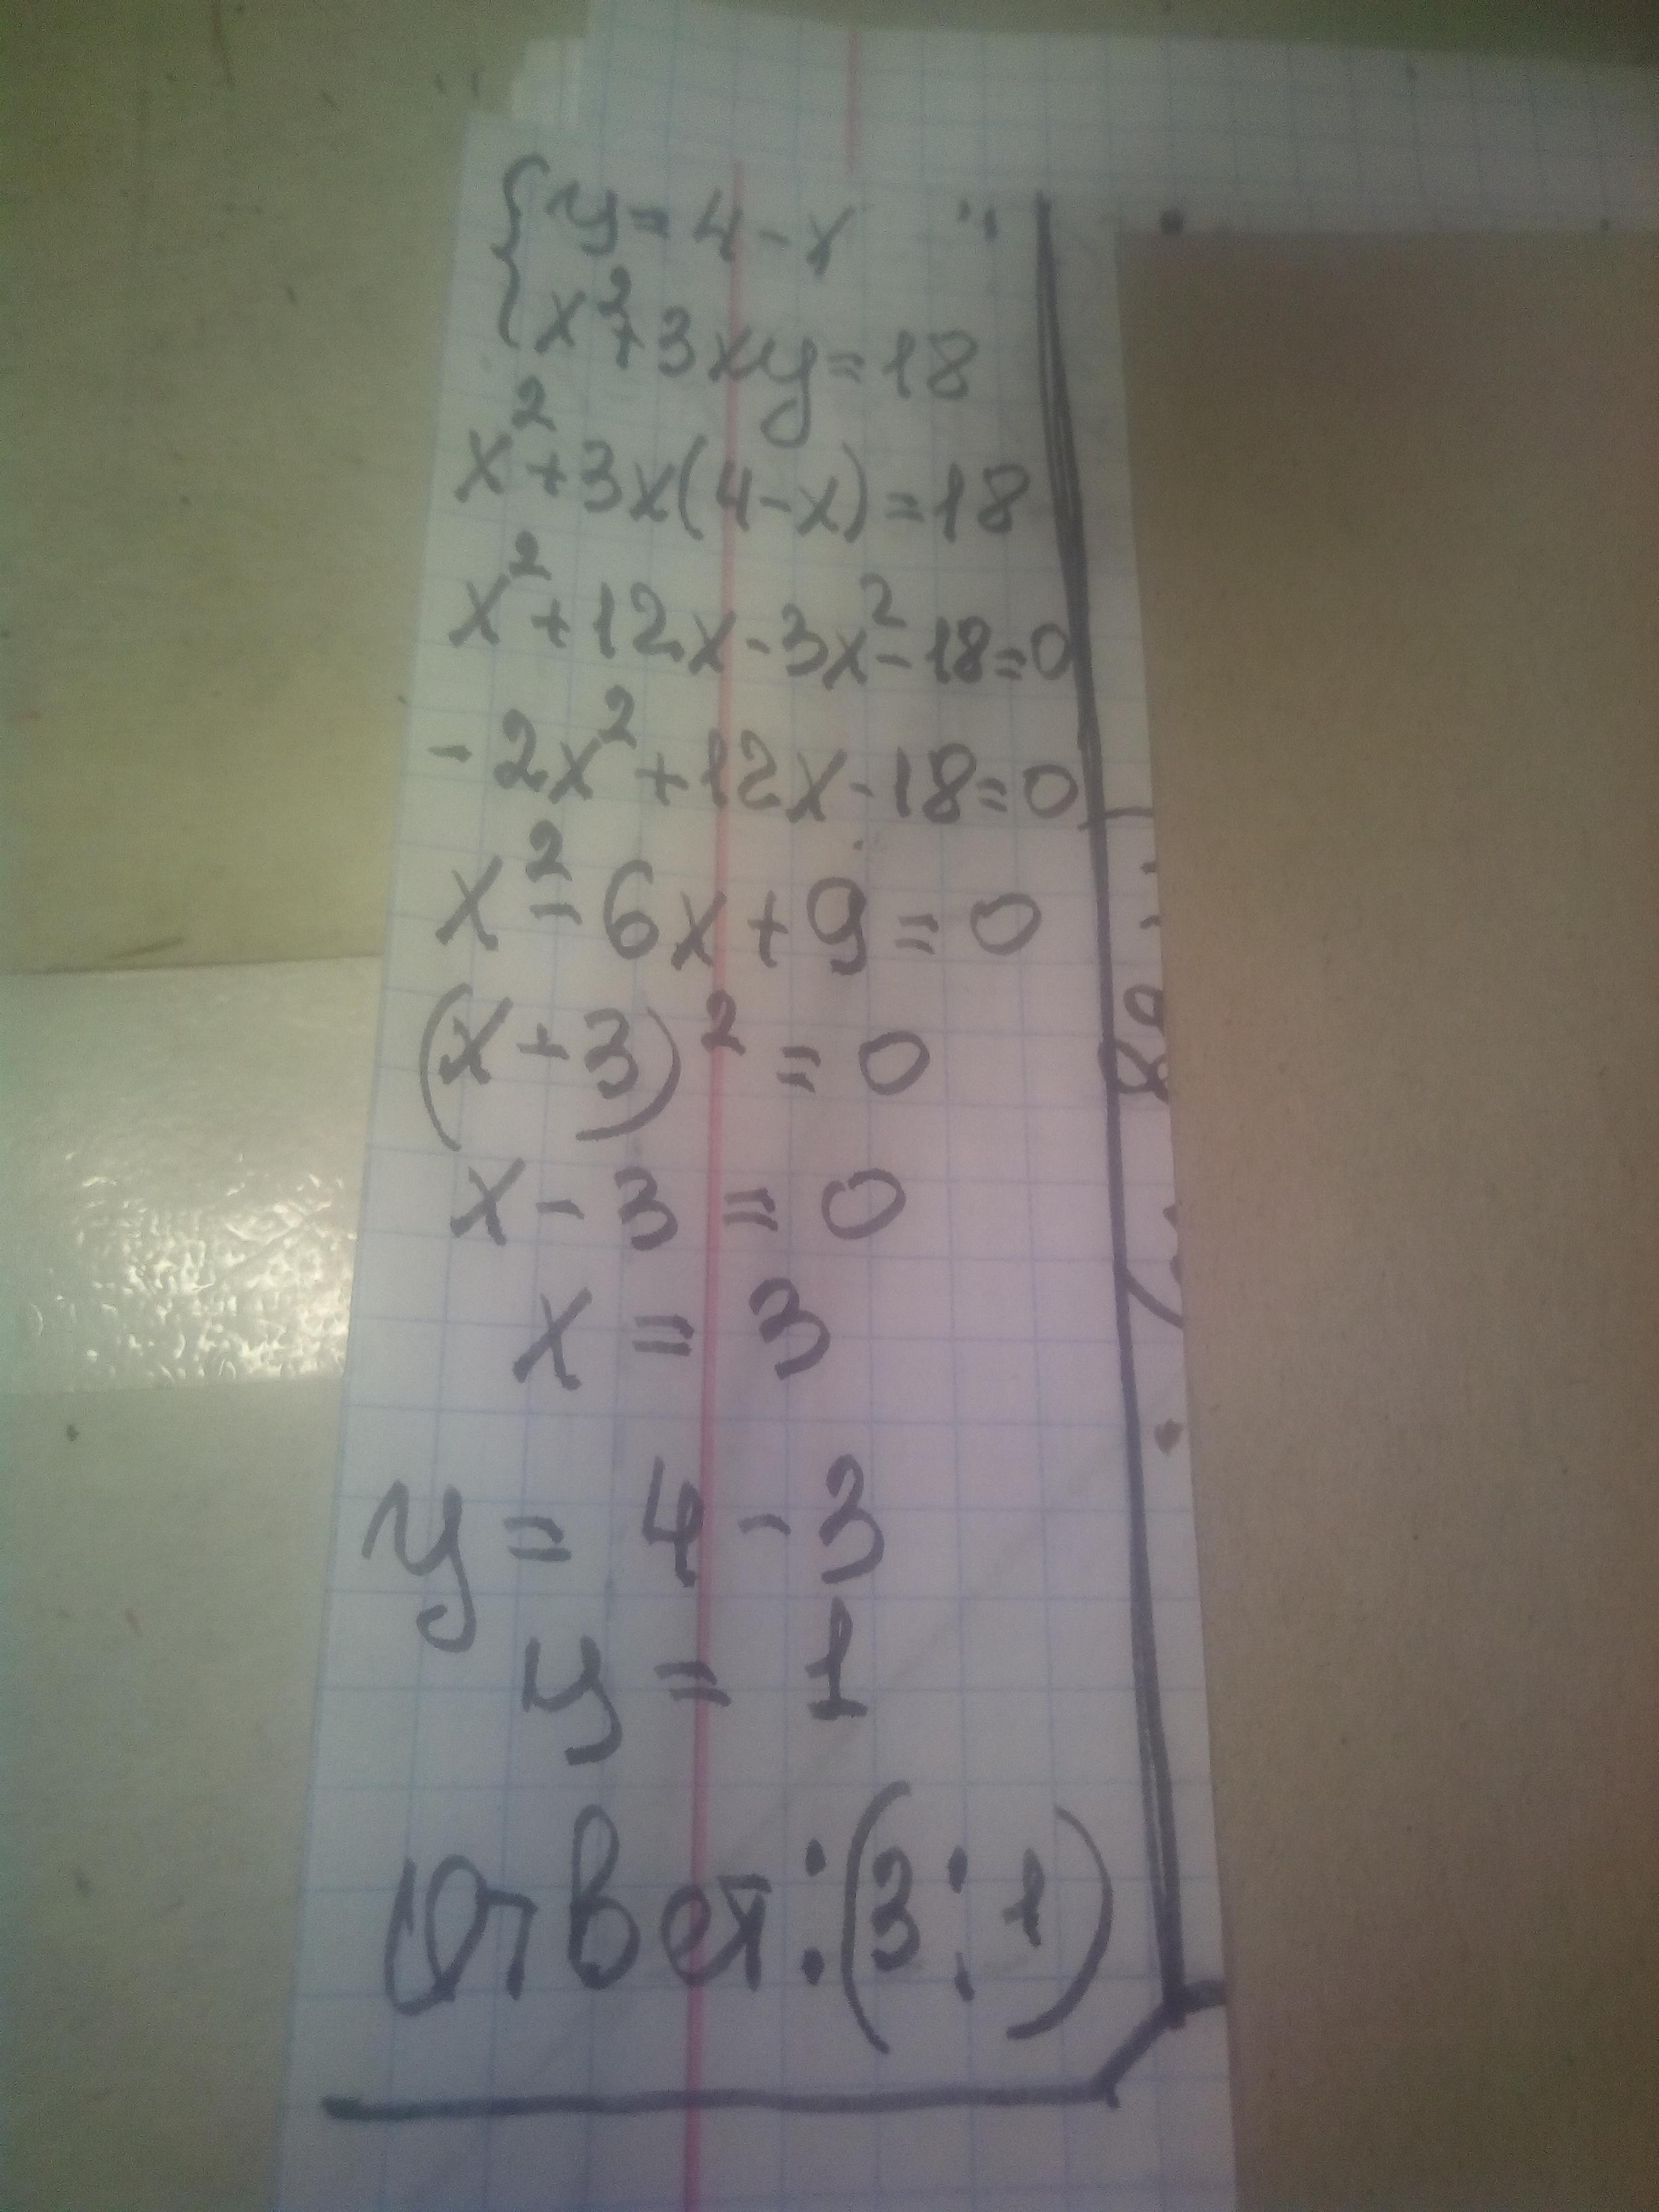 {y=4-x
x²+3xy=18
x²+3x(4-x)=18
x²+12x-3x²-18=0
-2x²+12x-18=0
x²-6x+9=0
(x-3)²=0
x-3=0
x=3
y=4-3
y=1
Ответ:(3;1)